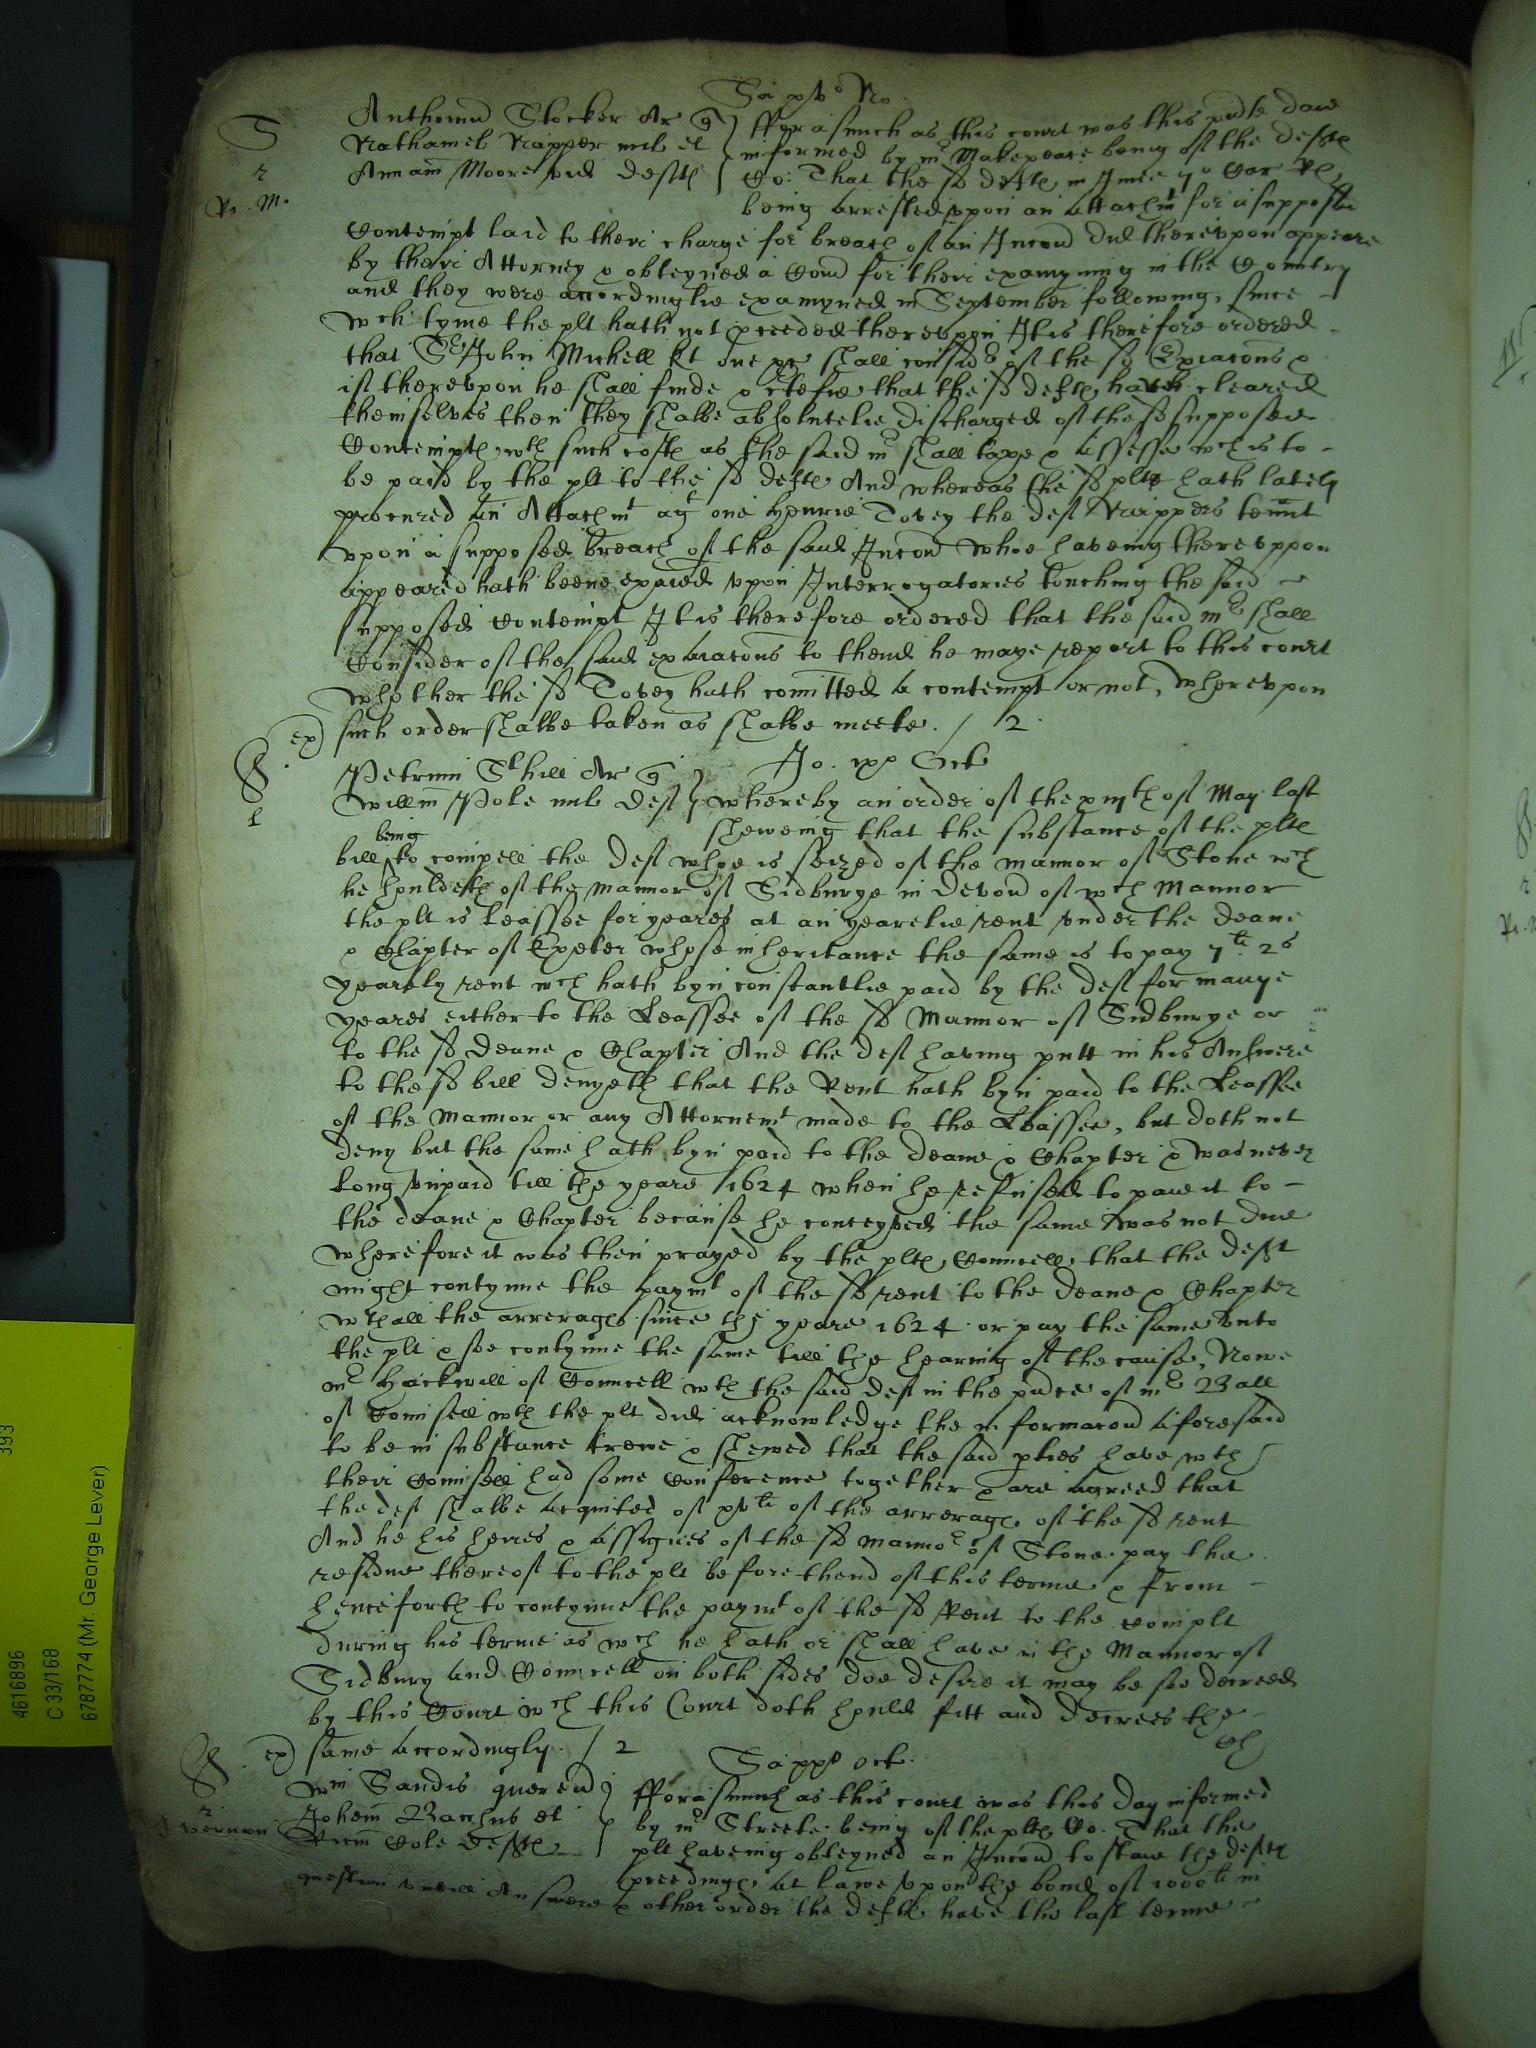 Sa xv° No.
S
Anthoniu Stocker Ar q
Nathaniel Napper mil et
Annam Moore vid defts
r
Pr. M.
fforasmuch as this court was this pnte daie
informed by mr Makepeace being of the defts
Co: That the sd defts in June 7° Car Rs
being arrested vpon an attachmt for a supposed
Contempt laid to their charge for breach of an Iniond did therevpon appeare
by their Attorney & obteyned a Comd for their examyning in the Countrey
and they were accordinglie examyned in September following, since
wch tyme the plt hath not pceeded therevpon It is therefore ordered
that Sr John Michell kt one &c shall consider of the sd Exiacons &
if therevpon he shall finde & ctefie that the sd defts have cleared
themselves then they shalbe absolutelie discharged of the sd supposed
Contempts wth such costs as the said mr shall taxe & assesse wch is to
be paid by the plt to the sd defts And whereas the sd plt hath lately
procured an Attachmt agt one Henrie Tovey the deft Nappers tennt
vpon a supposed breach of the said Iniond whoe haveing therevppon
appeared hath beene exaied vpon Interrogatories touching the said
supposed Contempt It is therefore ordered that the said mr shall
Consider of the said exaiacons to thend he maye report to this court
whether the sd Tovey hath comitted a contempt or not, wherevpon
ex) such order shalbe taken as shalbe meete. / 2
Jo. xx° Oct
S.
l
Petrum St hill Ar q
Willm Pole mil deft
whereby an order of the xiijth of May last
sheweing that the substance of the plts
being
bill to compell the deft whoe is seized of the mannor of Stone wch
he houldeth of the mannor of Sidburye in devon of wch Mannor
the plt is Leassee for yeares at an yearelie rent vnder the deane
& Chapter of Exeter whose inheritance the same is to pay 7li 2s
yearely rent wch hath byn constantlie paid by the deft for manye
yeares either to the Leassee of the sd Mannor of Sidburye or
to the sd deane & Chapter And the deft having putt in his Answere
to the sd bill denyeth that the Rent hath byn paid to the Leassee
of the Mannor or any Attornemt made to the Leassee, but doth not
deny but the same hath byn paid to the deane & Chapter & was never
long vnpaid till the yeare 1624 when he refused to paie it to
the deane & Chapter because he conceyved the same was not due
wherefore it was then prayed by the plts Councell, that the deft
might contynue the paymt of the sd rent to the deane & Chapter
wth all the arrerages since the yeare 1624 or pay the same vnto
the plt & soe contynue the same till the hearing of the cause, Nowe
mr Hackwill of Councell wth the said deft in the pnce of mr Ball
of Counsell wth the plt did acknowledge the informacon aforesaid
to be in substance trewe & shewed that the said pties have wth
their Counsell had some Conference together & are agreed that
the deft shalbe acquited of xvli of the arrerages of the sd rent
And he his heires & assignes of the sd mannor of Stone pay the
residue thereof to the plt before thend of this terme & from
henceforth to contynue the paymt of the sd Rent to the Complt
during his terme as wch he hath or shall have in the Mannor of
Sidbury and Councell on both sides doe desire it may be soe decreed
by this Court wch this Court doth hould fitt and decrees the
ex) same accordingly. / 2
Sa xx° Oct.
S.
r
J Vernon
Wm Sandis quered
Johem Bacchus et
Cole defts
fforasmuch as this court was this day informed
by mr Streete being of the plts Co. That the
plt haveing obteyned an Iniond to staie the defts
pceedings at lawe vpon the bond of 1000li in
question vntill Answere & other order the defts have the last terme
4616896
C 33/168
6787774 (Mr. George Lever)
393